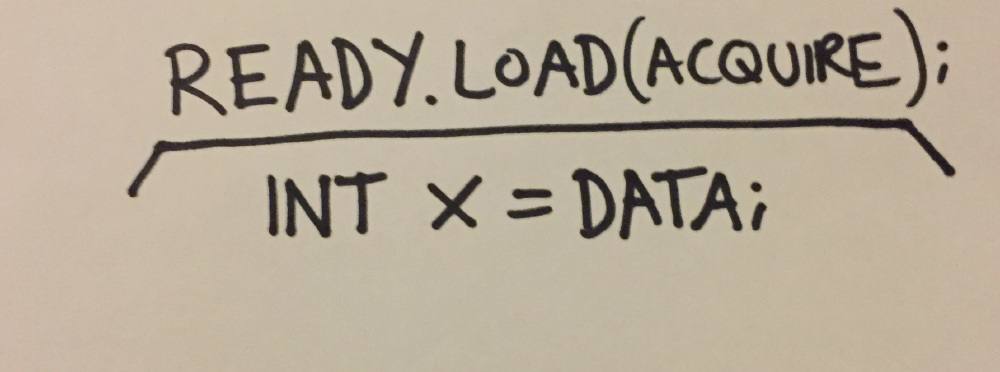 READY.LOAD(ACQUIRE);
INT X = DATA;